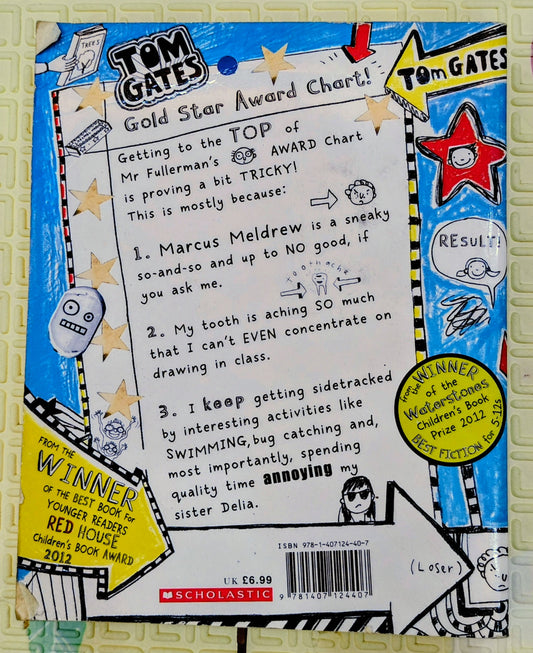 TREES
TOM
GATES
TOM GATES
Gold Star Award Chart!
Getting to the TOP of
Mr Fullerman's AWARD Chart
is proving a bit TRICKY!
This is mostly because:
1. Marcus Meldrew is a sneaky
so-and-so and up to NO good, if
you ask me.
Toothache
2. My tooth is aching SO much
that I can't EVEN concentrate on
drawing in class.
3. I keep getting sidetracked
by interesting activities like
SWIMMING, bug catching and,
most importantly, spending
quality time annoying my
sister Delia.
RESULT!
from the WINNER
of the
Waterstones
Children's Book
Prize 2012
BEST FICTION for 5-12s
FROM THE
WINNER
OF THE BEST BOOK for
YOUNGER READERS
RED HOUSE
Children's BOOK AWARD
2012
ISBN 978-1-407124-40-7
UK £6.99
SCHOLASTIC
9 781407 124407
(Loser)